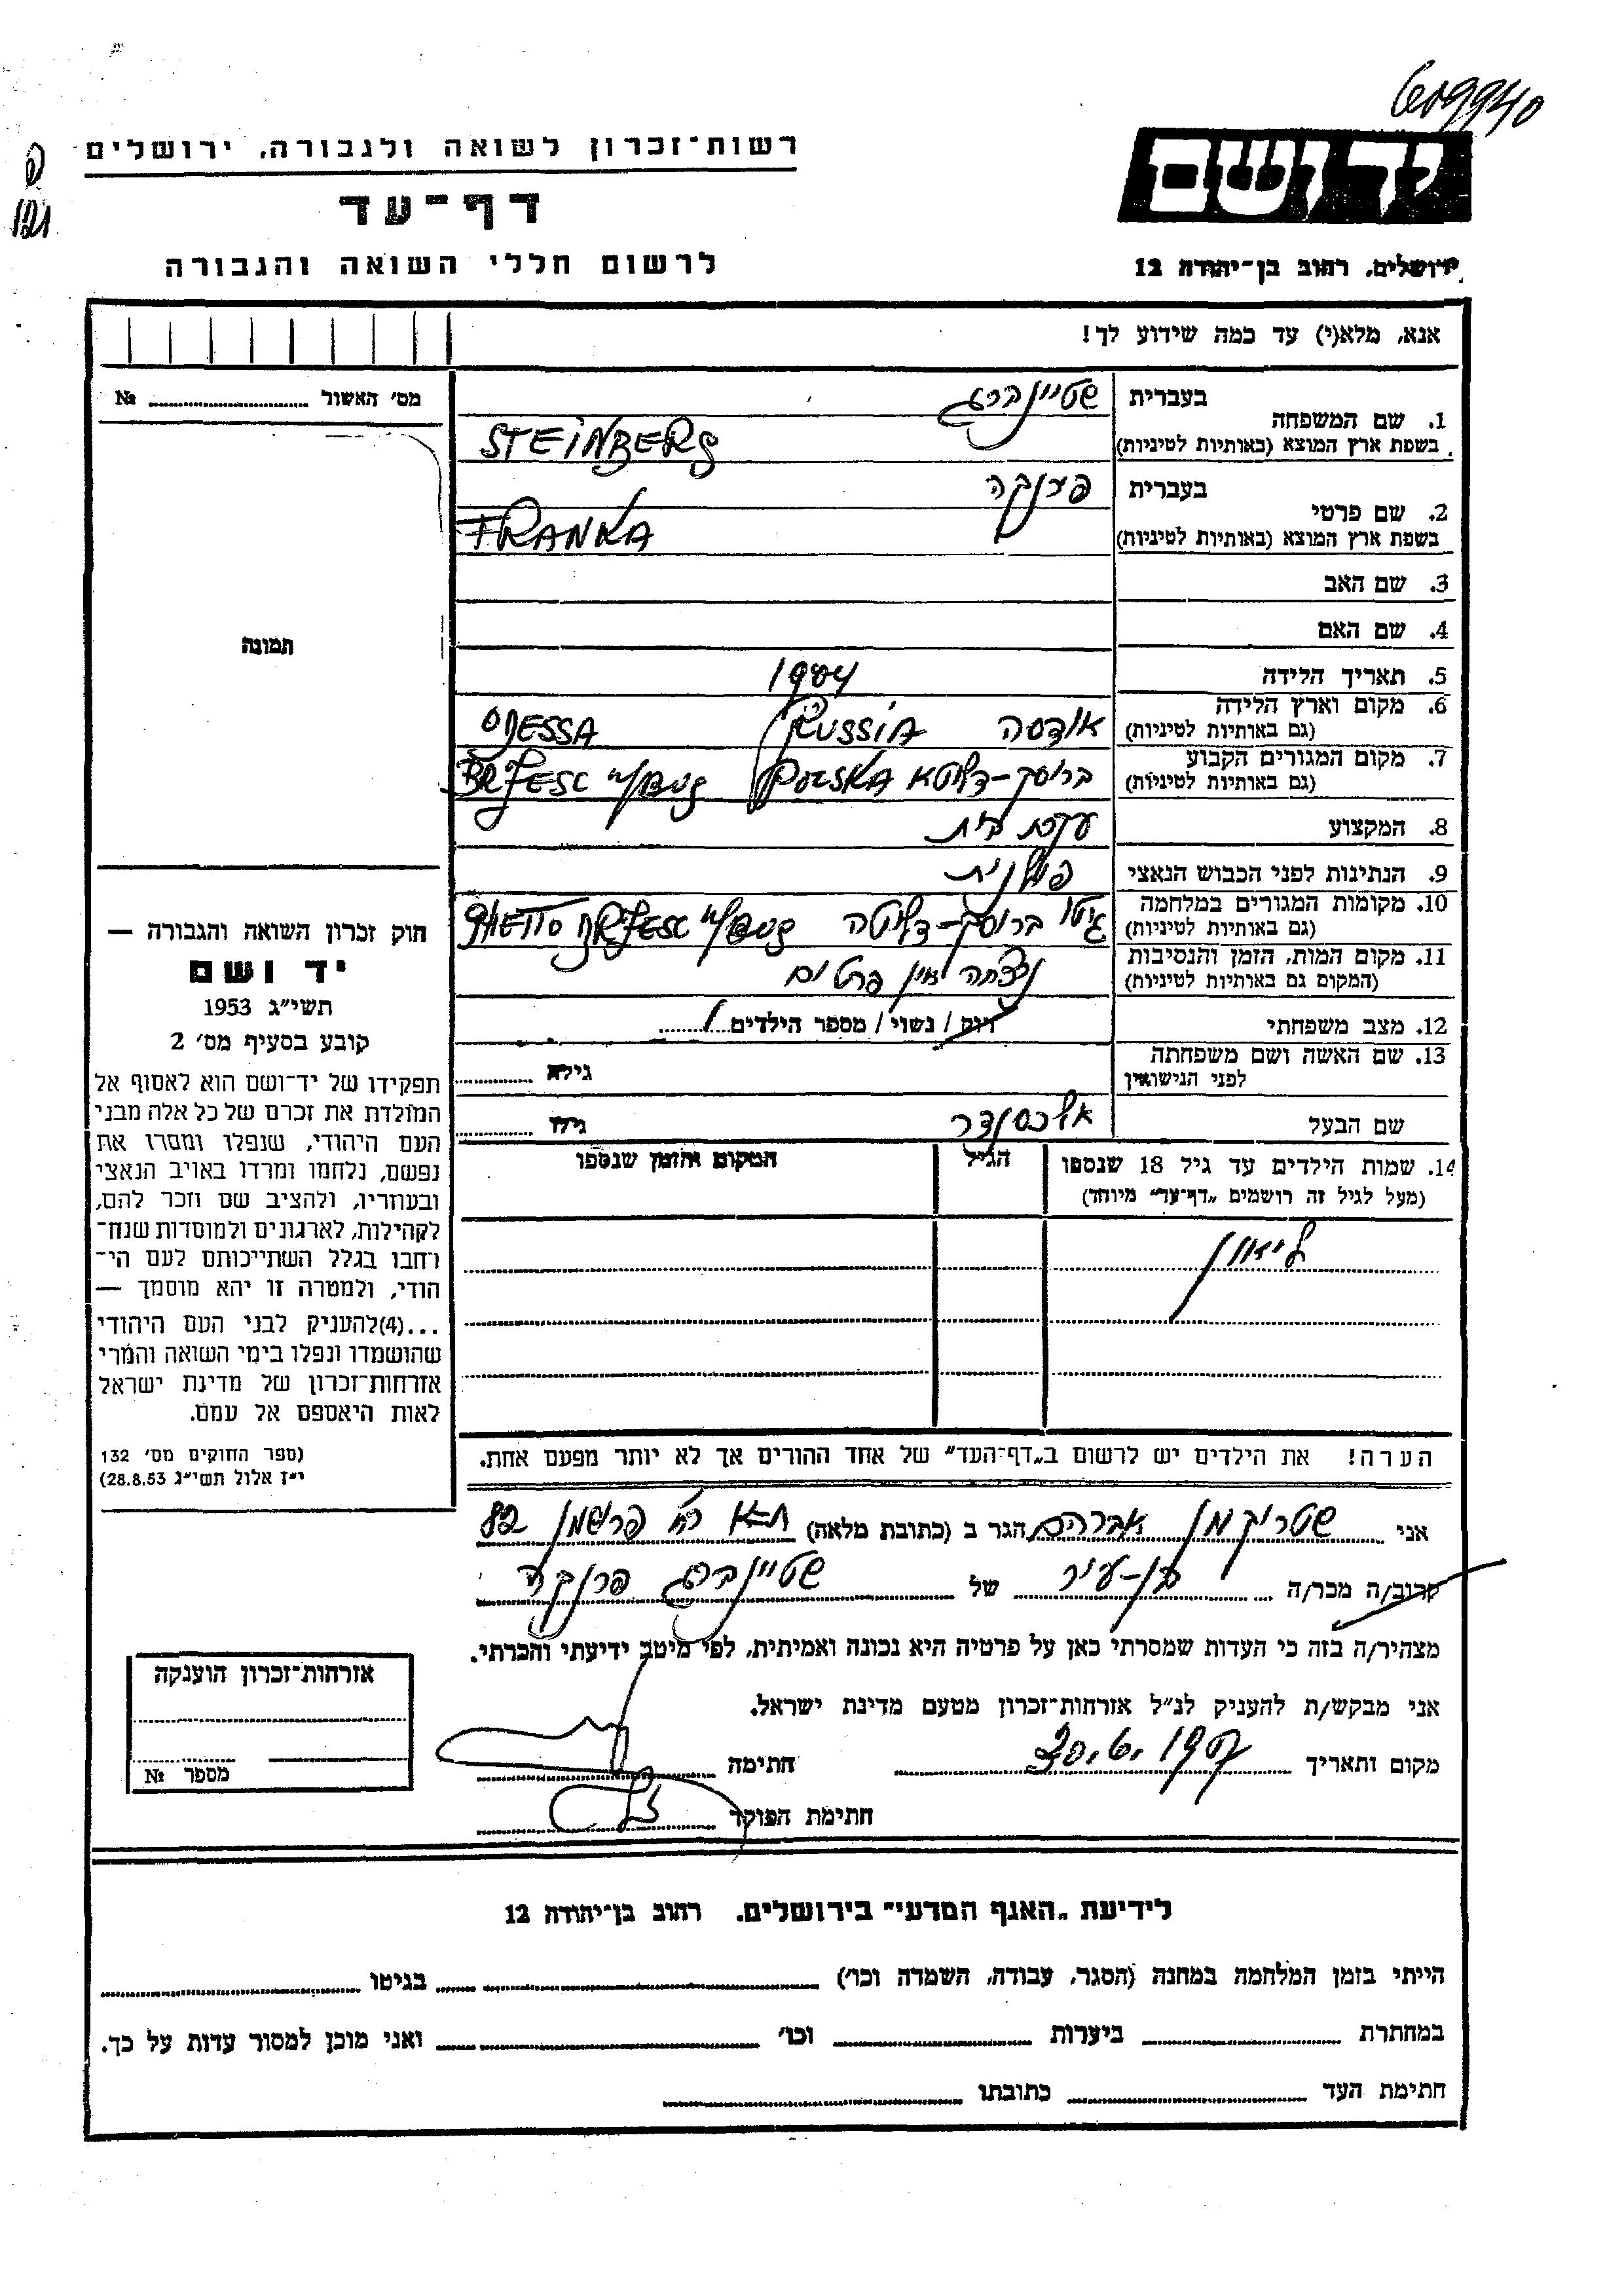 רשות־זכרון לשואה ולגבורה, ירושלים
דף־עד
לרשום חללי השואה והגבורה
יד ושם
ירושלים, רחוב בן־יהודה 12
121
אנא, מלא(י) עד כמה שידוע לך!
מס׳ האשול ........ №
תמונה
1. שם המשפחה בעברית שטיינברג
בשפת ארץ המוצא (באותיות לטיניות) STEINBERG
2. שם פרטי בעברית פרנקה
בשפת ארץ המוצא (באותיות לטיניות) FRANKA
3. שם האב
4. שם האם
5. תאריך הלידה 1904
6. מקום וארץ הלידה אודסה RUSSIA ODESSA
(גם באותיות לטיניות)
7. מקום המגורים הקבוע בריסק-דליטא POLSKA BRZESC n/BUG
(גם באותיות לטיניות)
8. המקצוע עקרת בית
9. הנתינות לפני הכבוש הנאצי פולנית
10. מקומות המגורים במלחמה גיטו בריסק-דליטה GHETTO BRZESC n/BUG
(גם באותיות לטיניות)
11. מקום המות, הזמן והנסיבות נצפתה אין פרטים
(המקום גם באותיות לטיניות)
12. מצב משפחתי רווק / נשוי / מספר הילדים 1
13. שם האשה ושם משפחתה
לפני הנישואין גילה ........
שם הבעל אלכסנדר גילו ........
14. שמות הילדים עד גיל 18 שנספו הגיל המקום והזמן שנספו
(מעל לגיל זה רושמים „דף־עד״ מיוחד)
ליאון
הערה! את הילדים יש לרשום ב„דף־העד״ של אחד ההורים אך לא יותר מפעם אחת.
חוק זכרון השואה והגבורה —
יד ושם
תשי״ג 1953
קובע בסעיף מס׳ 2
תפקידו של יד־ושם הוא לאסוף אל
המולדת את זכרם של כל אלה מבני
העם היהודי, שנפלו ומסרו את
נפשם, נלחמו ומרדו באויב הנאצי
ובעוזריו, ולהציב שם וזכר להם,
לקהילות, לארגונים ולמוסדות שנח־
רחבו בגלל השתייכותם לעם הי־
הודי, ולמטרה זו יהא מוסמך —
...(4)להעניק לבני העם היהודי
שהושמדו ונפלו בימי השואה והמרי
אזרחות־זכרון של מדינת ישראל
לאות היאספם אל עמם.
(ספר החוקים מס׳ 132
י״ז אלול תשי״ג 28.8.53)
אני שטריקמן אברהם הגר ב (כתובת מלאה) ת-א רח׳ פרישמן 82
קרוב/ה מכר/ה בן-עיר של שטיינברג פרנקה
מצהיר/ה בזה כי העדות שמסרתי כאן על פרטיה היא נכונה ואמיתית, לפי מיטב ידיעתי והכרתי.
אני מבקש/ת להעניק לנ״ל אזרחות־זכרון מטעם מדינת ישראל.
מקום ותאריך 30.6.1957 חתימה
חתימת הפוקד
אזרחות־זכרון הוענקה
מספר №
לידיעת „האגף המדעי״ בירושלים, רחוב בן־יהודה 12
הייתי בזמן המלחמה במחנה (הסגר, עבודה, השמדה וכו׳) ........ בגיטו ........
במחתרת ........ ביערות ........ וכו׳ ........ ואני מוכן למסור עדות על כך.
חתימת העד ........ כתובתו ........